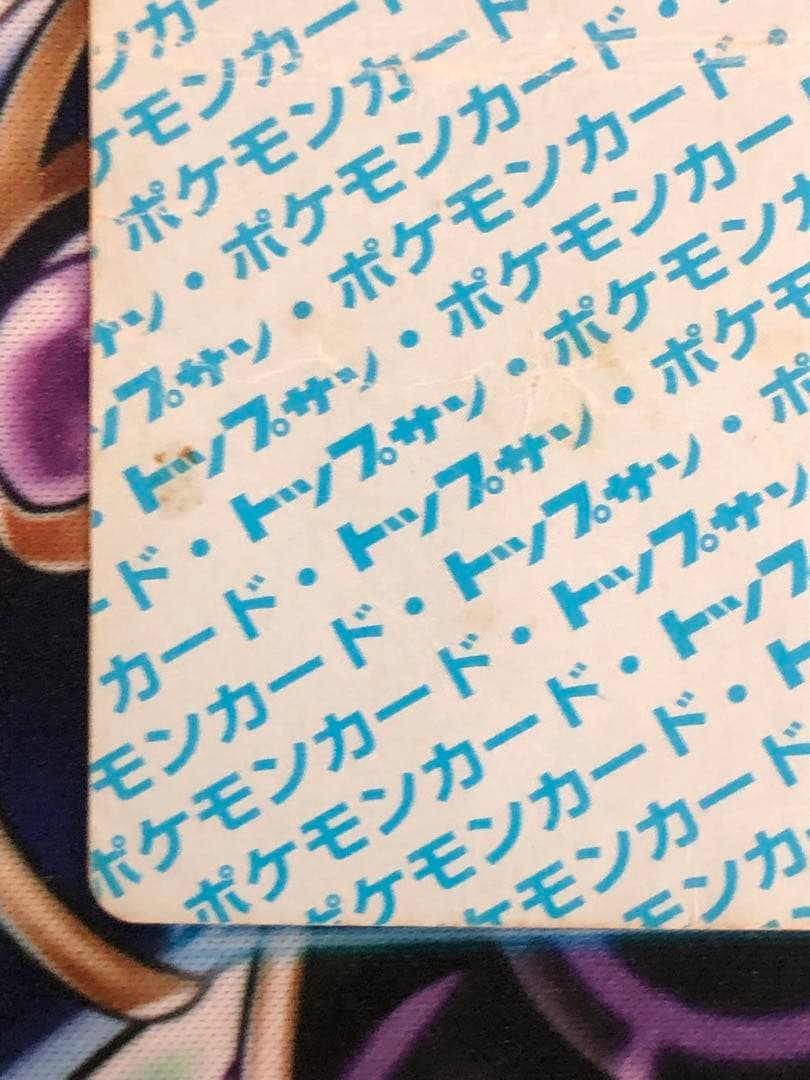 ンカ
ケモンカー
・ポケモンカード
サン・ポケモンカード・
ップサン・ポケモンカード・
・トップサン・ポケモンカー
ード・トップサン・ポケモンカ
カード・トップサン・ポケモ
モンカード・トップサン・ポ
ポケモンカード・トップサン
ポケモンカード・トップ
ポケモンカード・ト
ケモンカード
モンカ